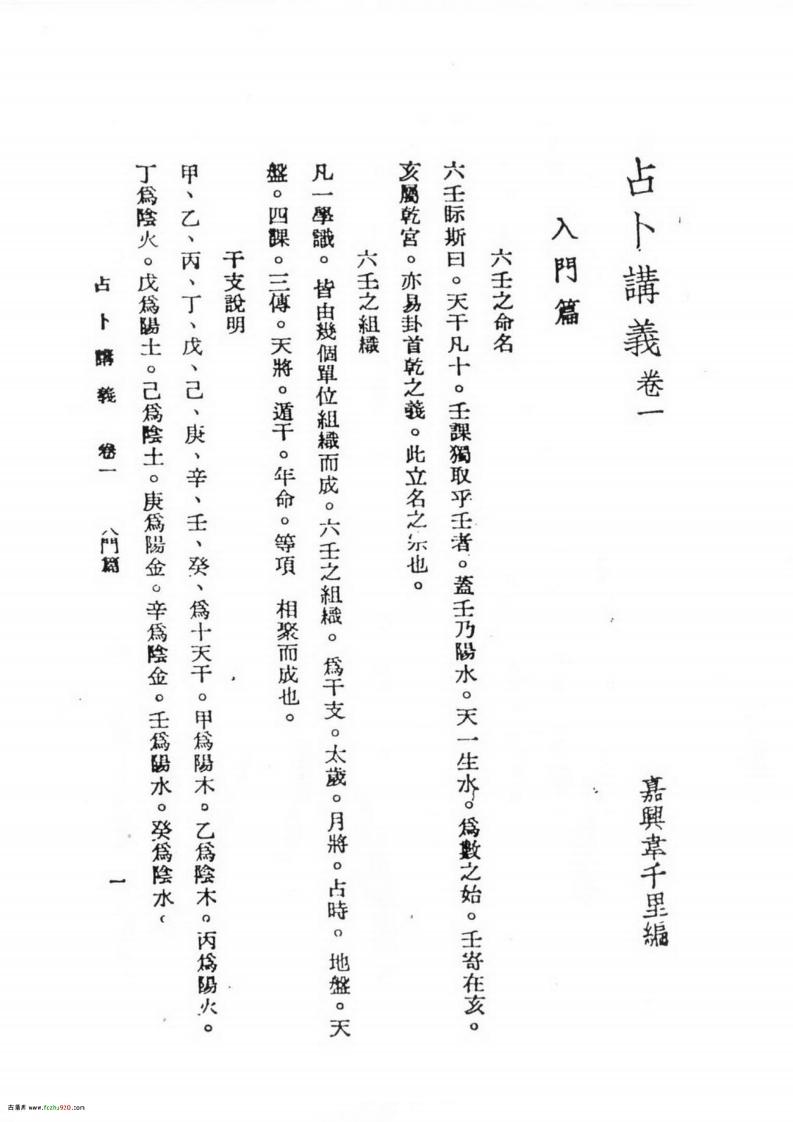 占卜講義 卷一
嘉興韋千里編
入門篇
六壬之命名
六壬际斯曰。天干凡十。壬課獨取乎壬者。蓋壬乃陽水。天一生水。爲數之始。壬寄在亥。
亥屬乾宮。亦易卦首乾之義。此立名之宗也。
六壬之組織
凡一學識。皆由幾個單位組織而成。六壬之組織。爲干支。太歲。月將。占時。地盤。天
盤。四課。三傳。天將。遁干。年命。等項 相聚而成也。
干支說明
甲、乙、丙、丁、戊、己、庚、辛、壬、癸、爲十天干。甲爲陽木。乙爲陰木。丙爲陽火。
丁爲陰火。戊爲陽土。己爲陰土。庚爲陽金。辛爲陰金。壬爲陽水。癸爲陰水。
占卜講義 卷一 入門篇 一
古籍库 www.fczhu920.com